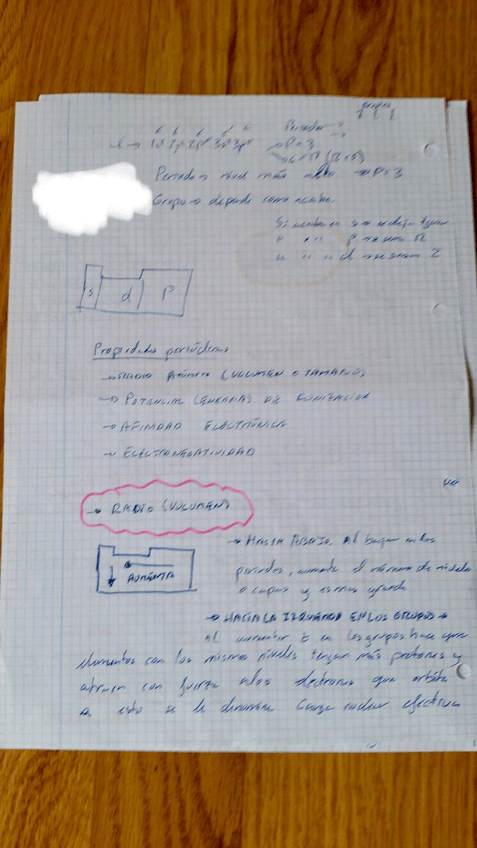 grupos
Periodo
1s² 2s² 2p⁶ 3s² 3p⁵ → P=3
Periodo → nivel más alto → P=3
Grupo → depende como acabe
Si acaba en s → se deja igual
p → se suma 12
d → se suma 2
s d p
Propiedades periódicas
→ RADIO ATÓMICO (VOLUMEN O TAMAÑO)
→ POTENCIAL (ENERGÍA) DE IONIZACIÓN
→ AFINIDAD ELECTRÓNICA
→ ELECTRONEGATIVIDAD
→ RADIO (VOLUMEN)
→ HACIA ABAJO. Al bajar en los
AUMENTA
periodos, aumenta el número de niveles
o capas y es mas grande
→ HACIA LA IZQUIERDA EN LOS GRUPOS →
Al aumentar Z en los grupos hace que
elementos con los mismos niveles tengan más protones y
atraen con fuerza a los electrones que orbita
a esto se le denomina Carga nuclear efectiva